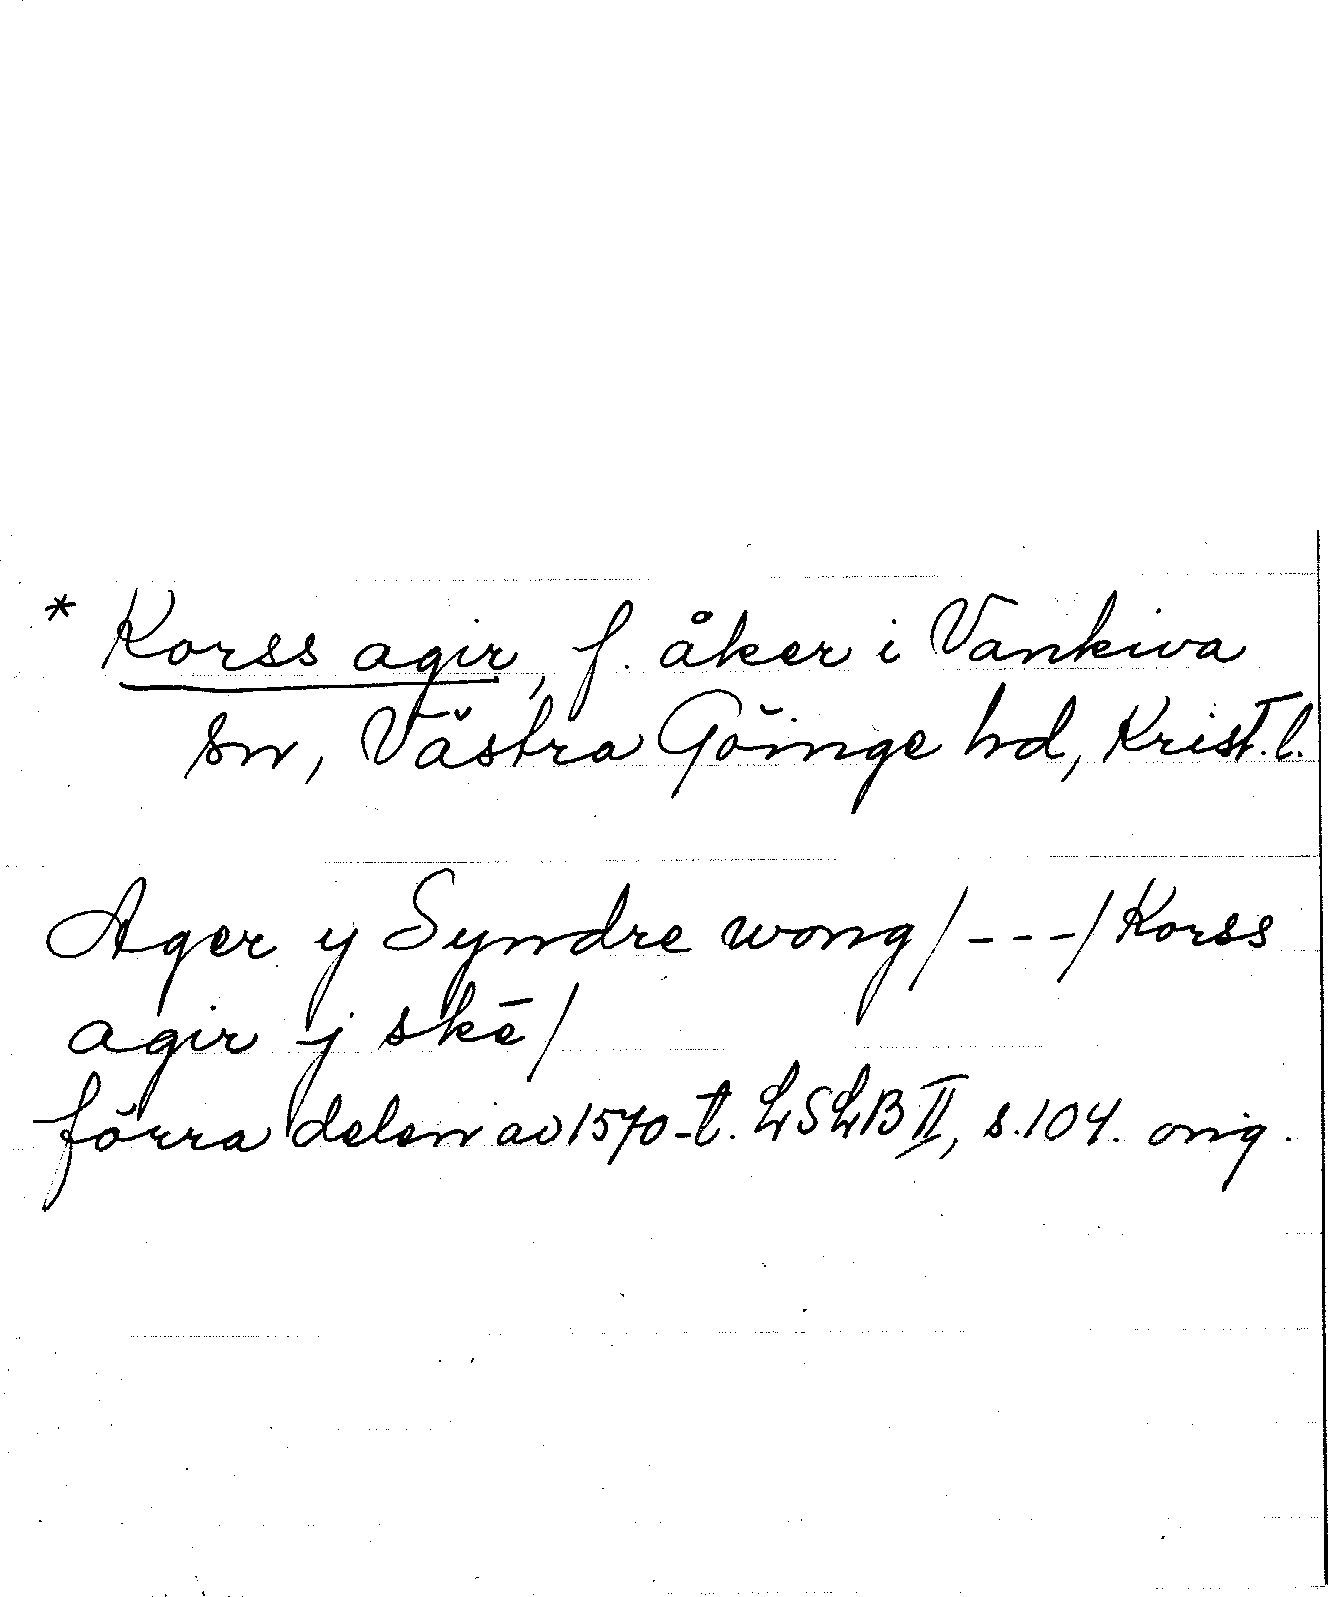 * Korss agir, f. åker i Vankiva
sn, Västra Göinge hd, Krist. l.
Ager y Syndre wong/---/Korss
agir j skē/
förra delen av 1570-t. LSLB II, s. 104. orig.